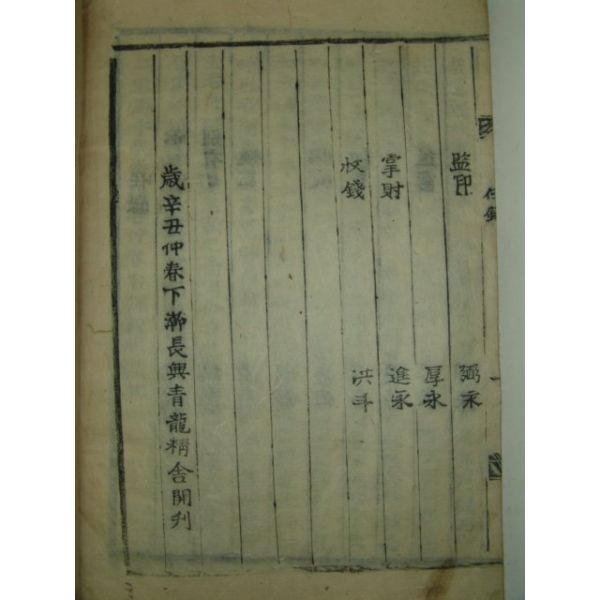 任錄 一
監印 弼永
厚永
掌財 進永
收錢 洪斗
歲辛丑仲春下澣長興青龍精舍開刋